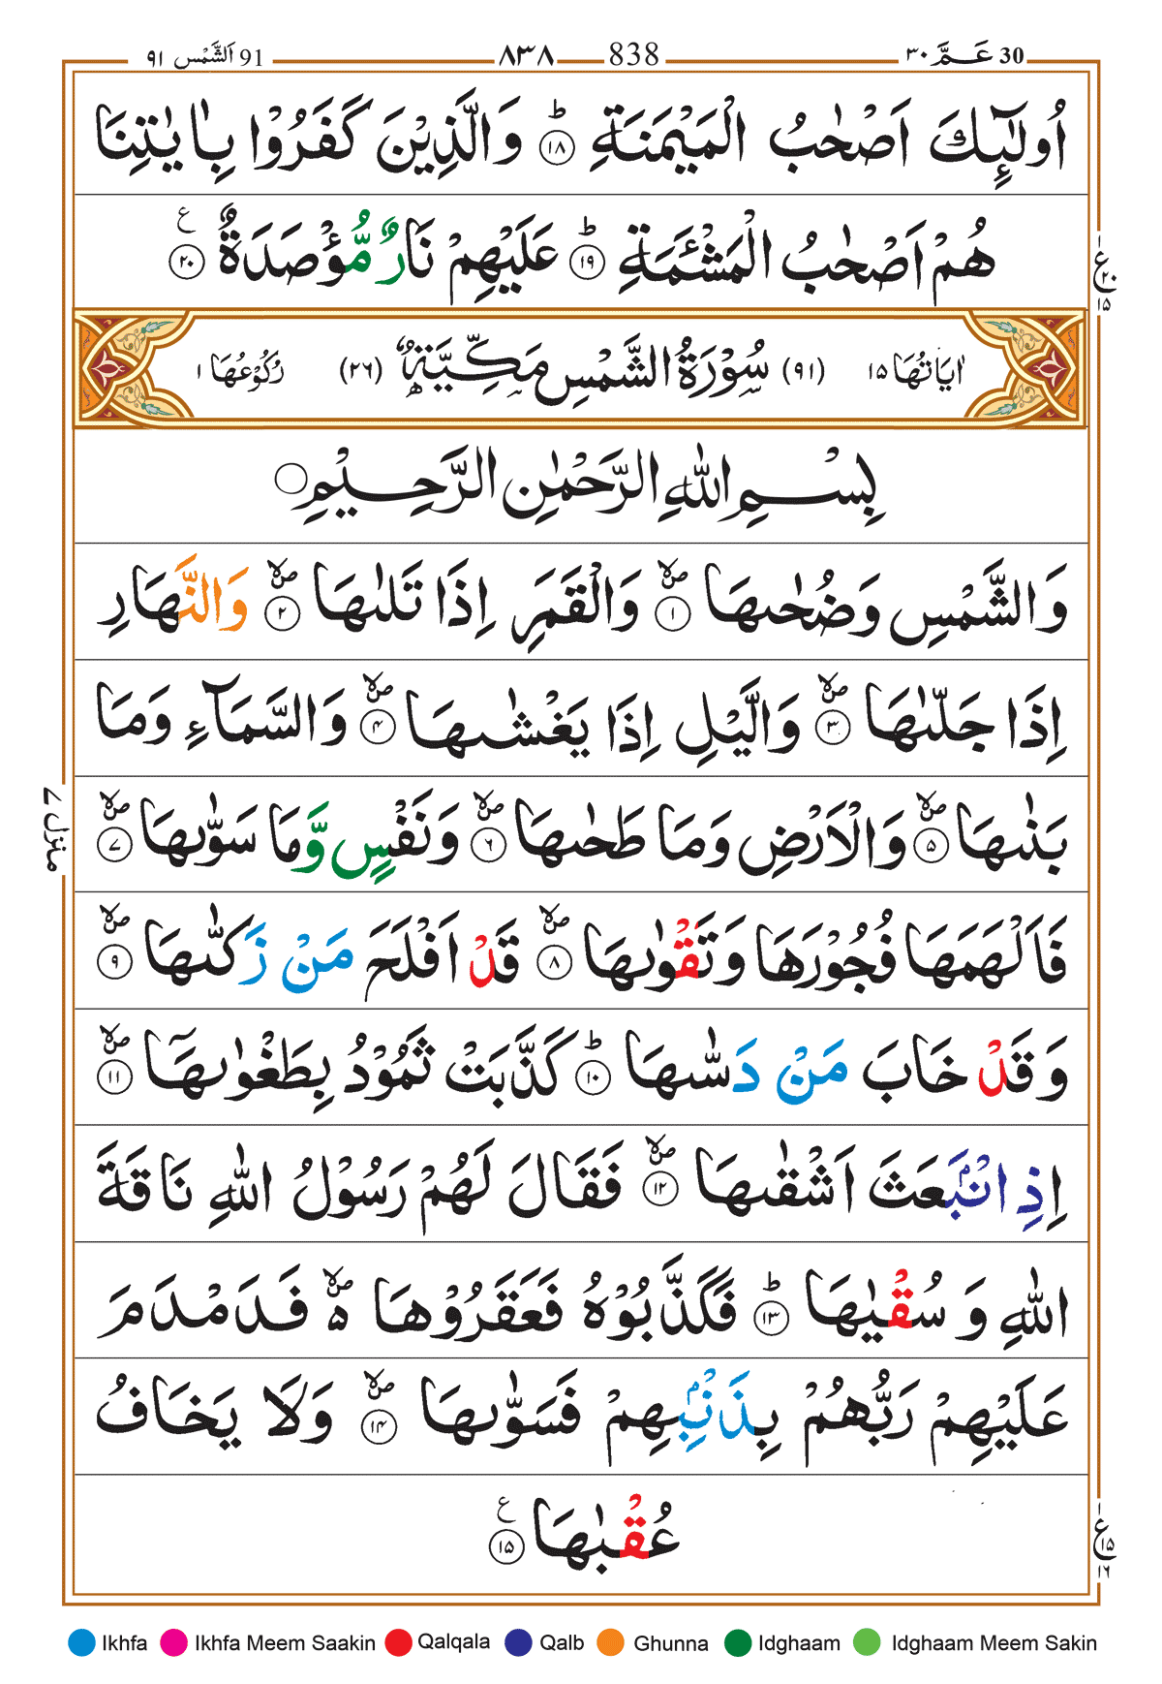 30 عَـمَّ ٣٠ 838 ٨٣٨ 91 اَلشَّمْس ٩١
اُولٰٓئِكَ اَصْحٰبُ الْمَيْمَنَةِ ؕ ١٨ وَالَّذِيْنَ كَفَرُوْا بِاٰيٰتِنَا
هُمْ اَصْحٰبُ الْمَشْـَٔمَةِ ؕ ١٩ عَلَيْهِمْ نَارٌ مُّؤْصَدَةٌ ٢٠ ع
ع ٢٠ ١٥
اٰيَاتُهَا ١٥ (٩١) سُوْرَةُ الشَّمْسِ مَكِّيَّةٌ (٢٦) رُكُوْعُهَا ١
بِسْمِ اللّٰهِ الرَّحْمٰنِ الرَّحِيْمِ
وَالشَّمْسِ وَضُحٰىهَا ۙ ١ وَالْقَمَرِ اِذَا تَلٰىهَا ۙ ٢ وَالنَّهَارِ
اِذَا جَلّٰىهَا ۙ ٣ وَالَّيْلِ اِذَا يَغْشٰىهَا ۙ ٤ وَالسَّمَآءِ وَمَا
بَنٰىهَا ۙ ٥ وَالْاَرْضِ وَمَا طَحٰىهَا ۙ ٦ وَنَفْسٍ وَّمَا سَوّٰىهَا ۙ ٧
منزل ٧
فَاَلْهَمَهَا فُجُوْرَهَا وَتَقْوٰىهَا ۙ ٨ قَدْ اَفْلَحَ مَنْ زَكّٰىهَا ۙ ٩
وَقَدْ خَابَ مَنْ دَسّٰىهَا ؕ ١٠ كَذَّبَتْ ثَمُوْدُ بِطَغْوٰىهَاۤ ۙ ١١
اِذِ انْۢبَعَثَ اَشْقٰىهَا ۙ ١٢ فَقَالَ لَهُمْ رَسُوْلُ اللّٰهِ نَاقَةَ
اللّٰهِ وَسُقْيٰهَا ؕ ١٣ فَكَذَّبُوْهُ فَعَقَرُوْهَا ۙ۬ فَدَمْدَمَ
عَلَيْهِمْ رَبُّهُمْ بِذَنْۢبِهِمْ فَسَوّٰىهَا ۙ ١٤ وَلَا يَخَافُ
عُقْبٰهَا ١٥ ع
ع ١٥ ١٦
Ikhfa Ikhfa Meem Saakin Qalqala Qalb Ghunna Idghaam Idghaam Meem Sakin